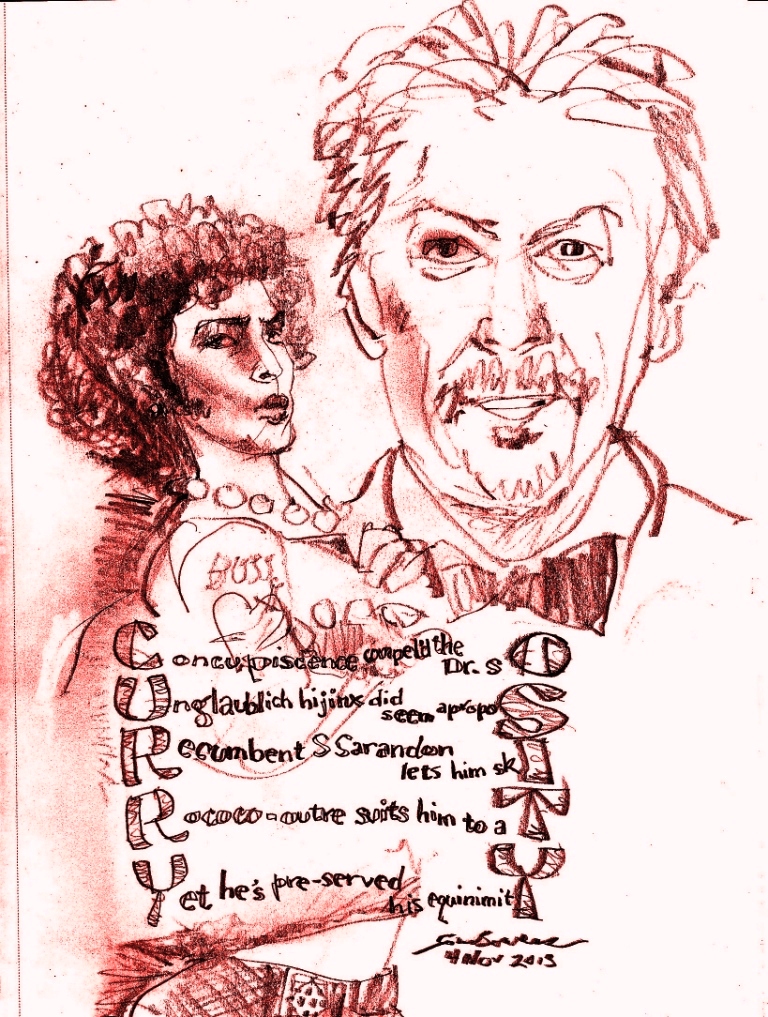 BOSS
Concupiscence compell'd the Dr. s O
Unglaublich hijinx did seem apropoS
Recumbent S Sarandon lets him skI
Rococo-outre suits him to a T
Yet he's pre-served his equinimitY
4 Nov 2013